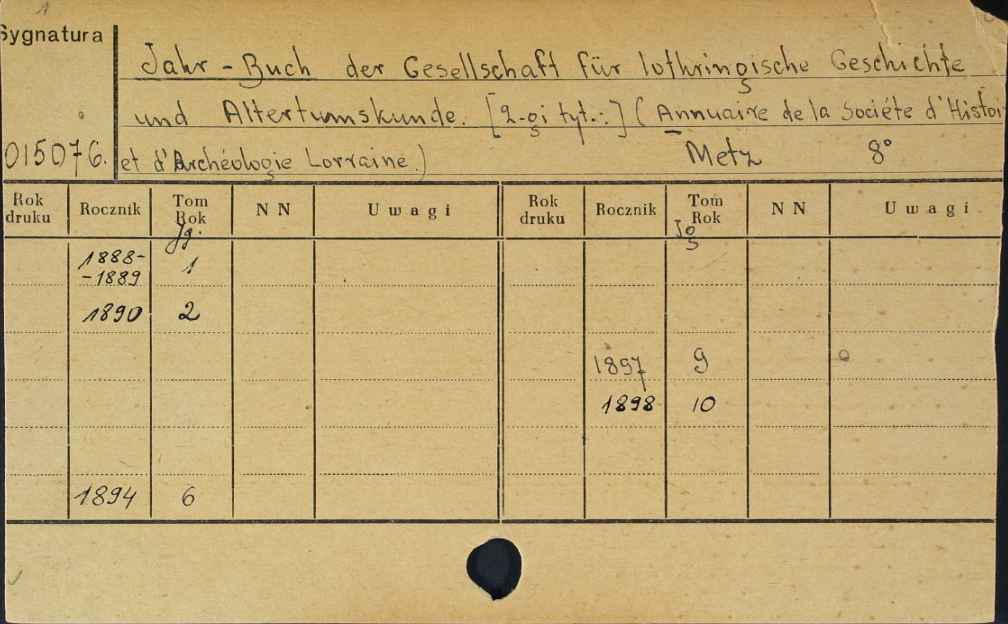 1
Sygnatura
Jahr-Buch der Gesellschaft für lothringische Geschichte
und Altertumskunde. [2-gi tyt.:] (Annuaire de la Sociéte d'Histoi
015076. et d'Archéologie Lorraine.) Metz 8°
Rok druku Rocznik Tom Rok N N Uwagi Rok druku Rocznik Tom Rok N N Uwagi
Jg. Jg
1888-
-1889 1
1890 2
1897 9
1898 10
1894 6